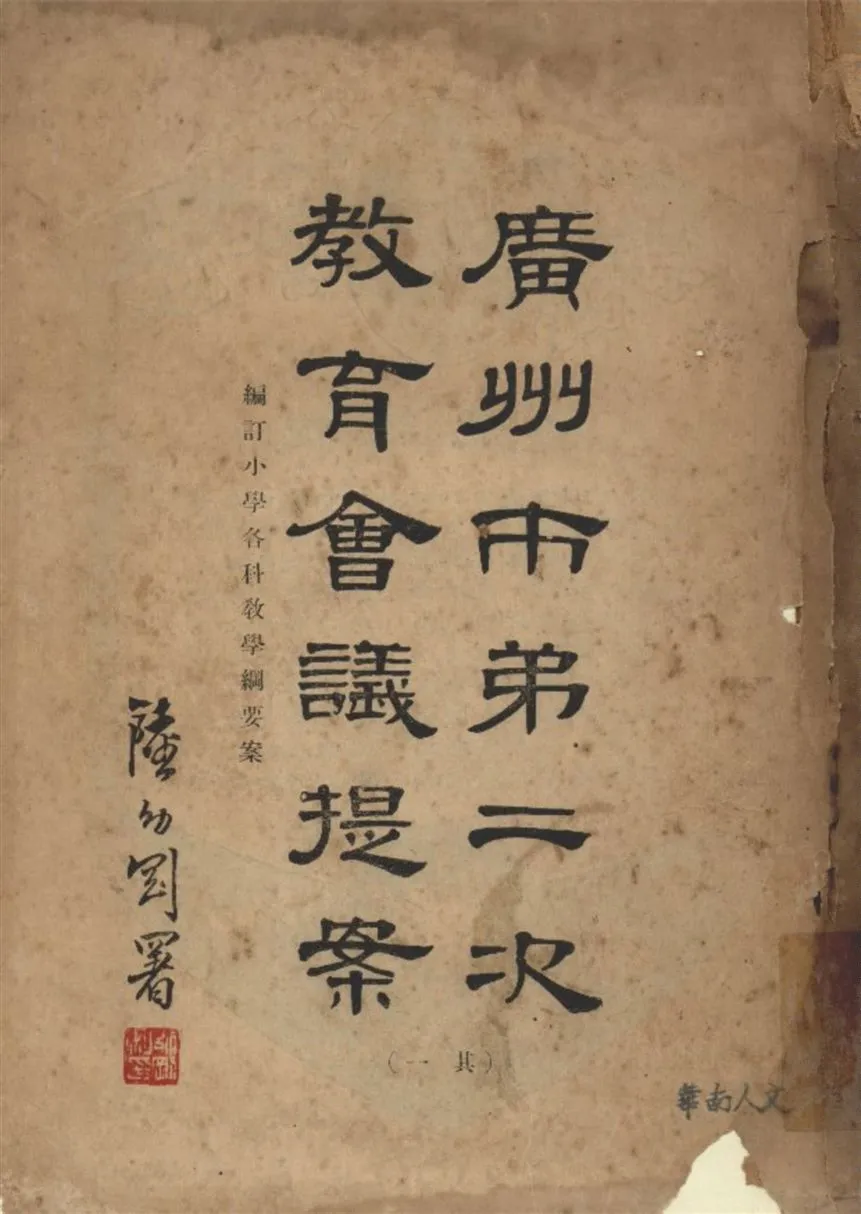 廣州市弟二次
教育會議提案
編訂小學各科教學綱要案
陸幼剛署
(其一)
華南人文